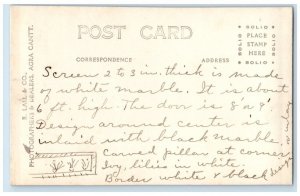 POST CARD
SOLIO
SOLIO SOLIO
PLACE
STAMP
HERE
SOLIO SOLIO
CORRESPONDENCE ADDRESS
& CO.,
PHOTOGRAPHERS & DEALERS, AGRA CANTT.
Screen 2 to 3 in. thick is made
of white marble. It is about
6 ft. high. The door is 8' x 9'.
Design around center is
inlaid with black marble,
carved pillar at corner
Ivy, lilies in white.
Border white & black
design inlay